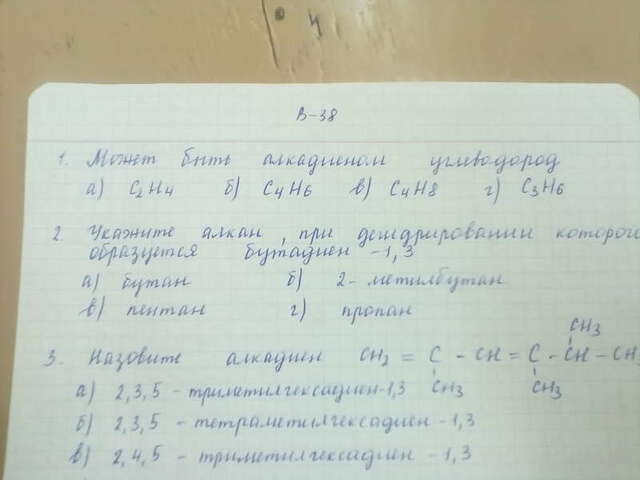 В-38
1. Может быть алкадиеном углеводород
а) C2H4 б) C4H6 в) C4H8 г) C3H6
2. Укажите алкан, при дегидрировании которого
образуется бутадиен -1,3
а) бутан б) 2-метилбутан
в) пентан г) пропан
CH3
3. Назовите алкадиен CH2 = C - CH = C - CH - CH3
CH3 CH3
а) 2,3,5 - триметилгексадиен-1,3
б) 2,3,5 - тетраметилгексадиен -1,3
в) 2,4,5 - триметилгексадиен -1,3